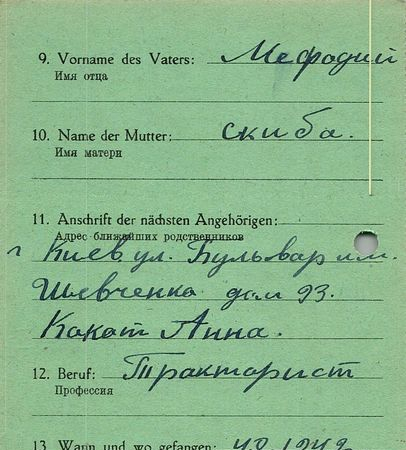 9. Vorname des Vaters: Мефодий
Имя отца
10. Name der Mutter: скиба.
Имя матери
11. Anschrift der nächsten Angehörigen:
Адрес ближайших родственников
г Киев ул. Бульвар им.
Шевченка дом 93.
Кокот Анна.
12. Beruf: Тракторист
Профессия
13. Wann und wo gefangen: